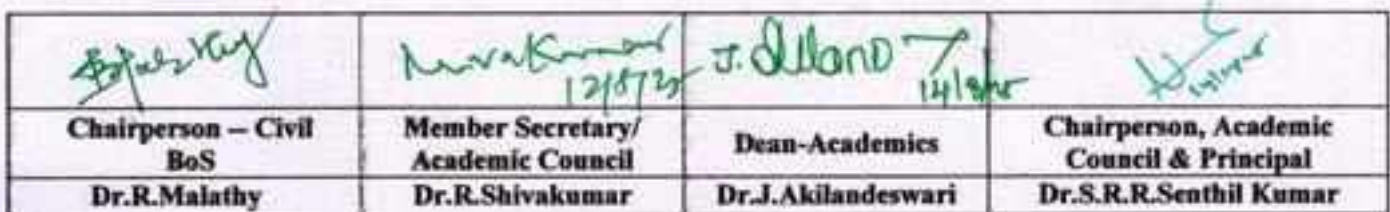 12/8/25
14/8/25
Chairperson – Civil
BoS
Member Secretary/
Academic Council
Dean-Academics
Chairperson, Academic
Council & Principal
Dr.R.Malathy
Dr.R.Shivakumar
Dr.J.Akilandeswari
Dr.S.R.R.Senthil Kumar